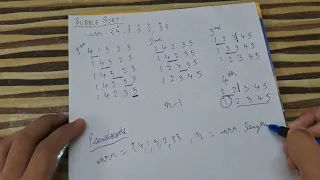 BUBBLE SORT -
1st 4 1 5 2 3
1 4 5 2 3
1 4 5 2 3
1 4 2 5 3
1 4 2 3 5
2nd
1 4 2 3 5
1 4 2 3 5
1 2 4 3 5
1 2 3 4 5
3rd
1 2 3 4 5
1 2 3 4 5
1 2 3 4 5
4th
1 2 3 4 5
1 2 3 4 5
n-1
Pseudocode
arr = {4, 1, 5, 2, 3}, n = arr.length